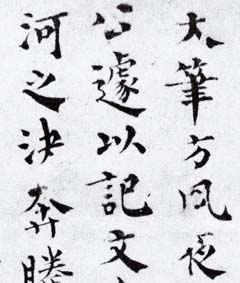 大筆方風
公遽以記文
河之決奔騰